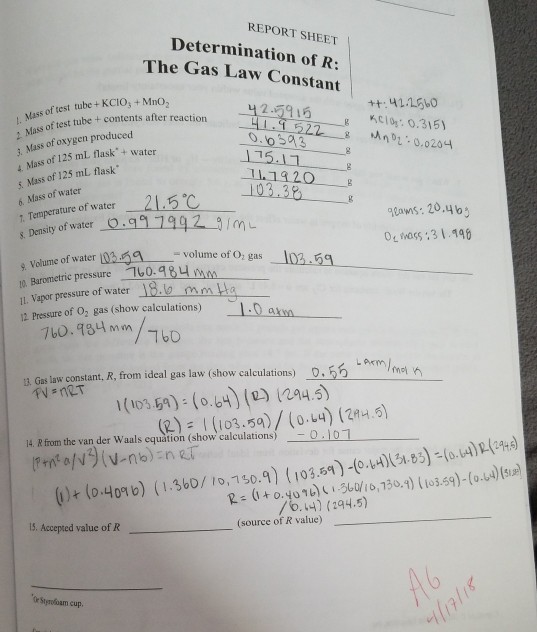 REPORT SHEET
Determination of R:
The Gas Law Constant
tt: 42.2560
KClO3: 0.3151
MnO2: 0.0204
1. Mass of test tube + KClO3 + MnO2 42.5915 g
2. Mass of test tube + contents after reaction 41.9522 g
3. Mass of oxygen produced 0.6393 g
4. Mass of 125 mL flask* + water 175.17 g
5. Mass of 125 mL flask* 71.7920 g
6. Mass of water 103.38 g
7. Temperature of water 21.5°C
8. Density of water 0.997992 g/mL
grams: 20.46g
O2 mass: 31.998
9. Volume of water 103.59 = volume of O2 gas 103.59
10. Barometric pressure 760.984 mm
11. Vapor pressure of water 18.6 mmHg
12. Pressure of O2 gas (show calculations) 1.0 atm
760.984 mm/760
13. Gas law constant, R, from ideal gas law (show calculations) 0.55 L atm/mol K
PV = nRT
1(103.59) = (0.64)(R)(294.5)
(R) = 1(103.59)/(0.64)(294.5)
14. R from the van der Waals equation (show calculations) -0.107
(P+n²a/V²)(V-nb)=nRT
(1)+(0.4096)(1.360/10,730.9)(103.59)-(0.64)(31.83)=(0.64)R(294.5)
R=(1+0.4096)(1.360/10,730.9)(103.59)-(0.64)
/0.64)(294.5)
15. Accepted value of R (source of R value)
*Or Styrofoam cup.
AG
4/17/18